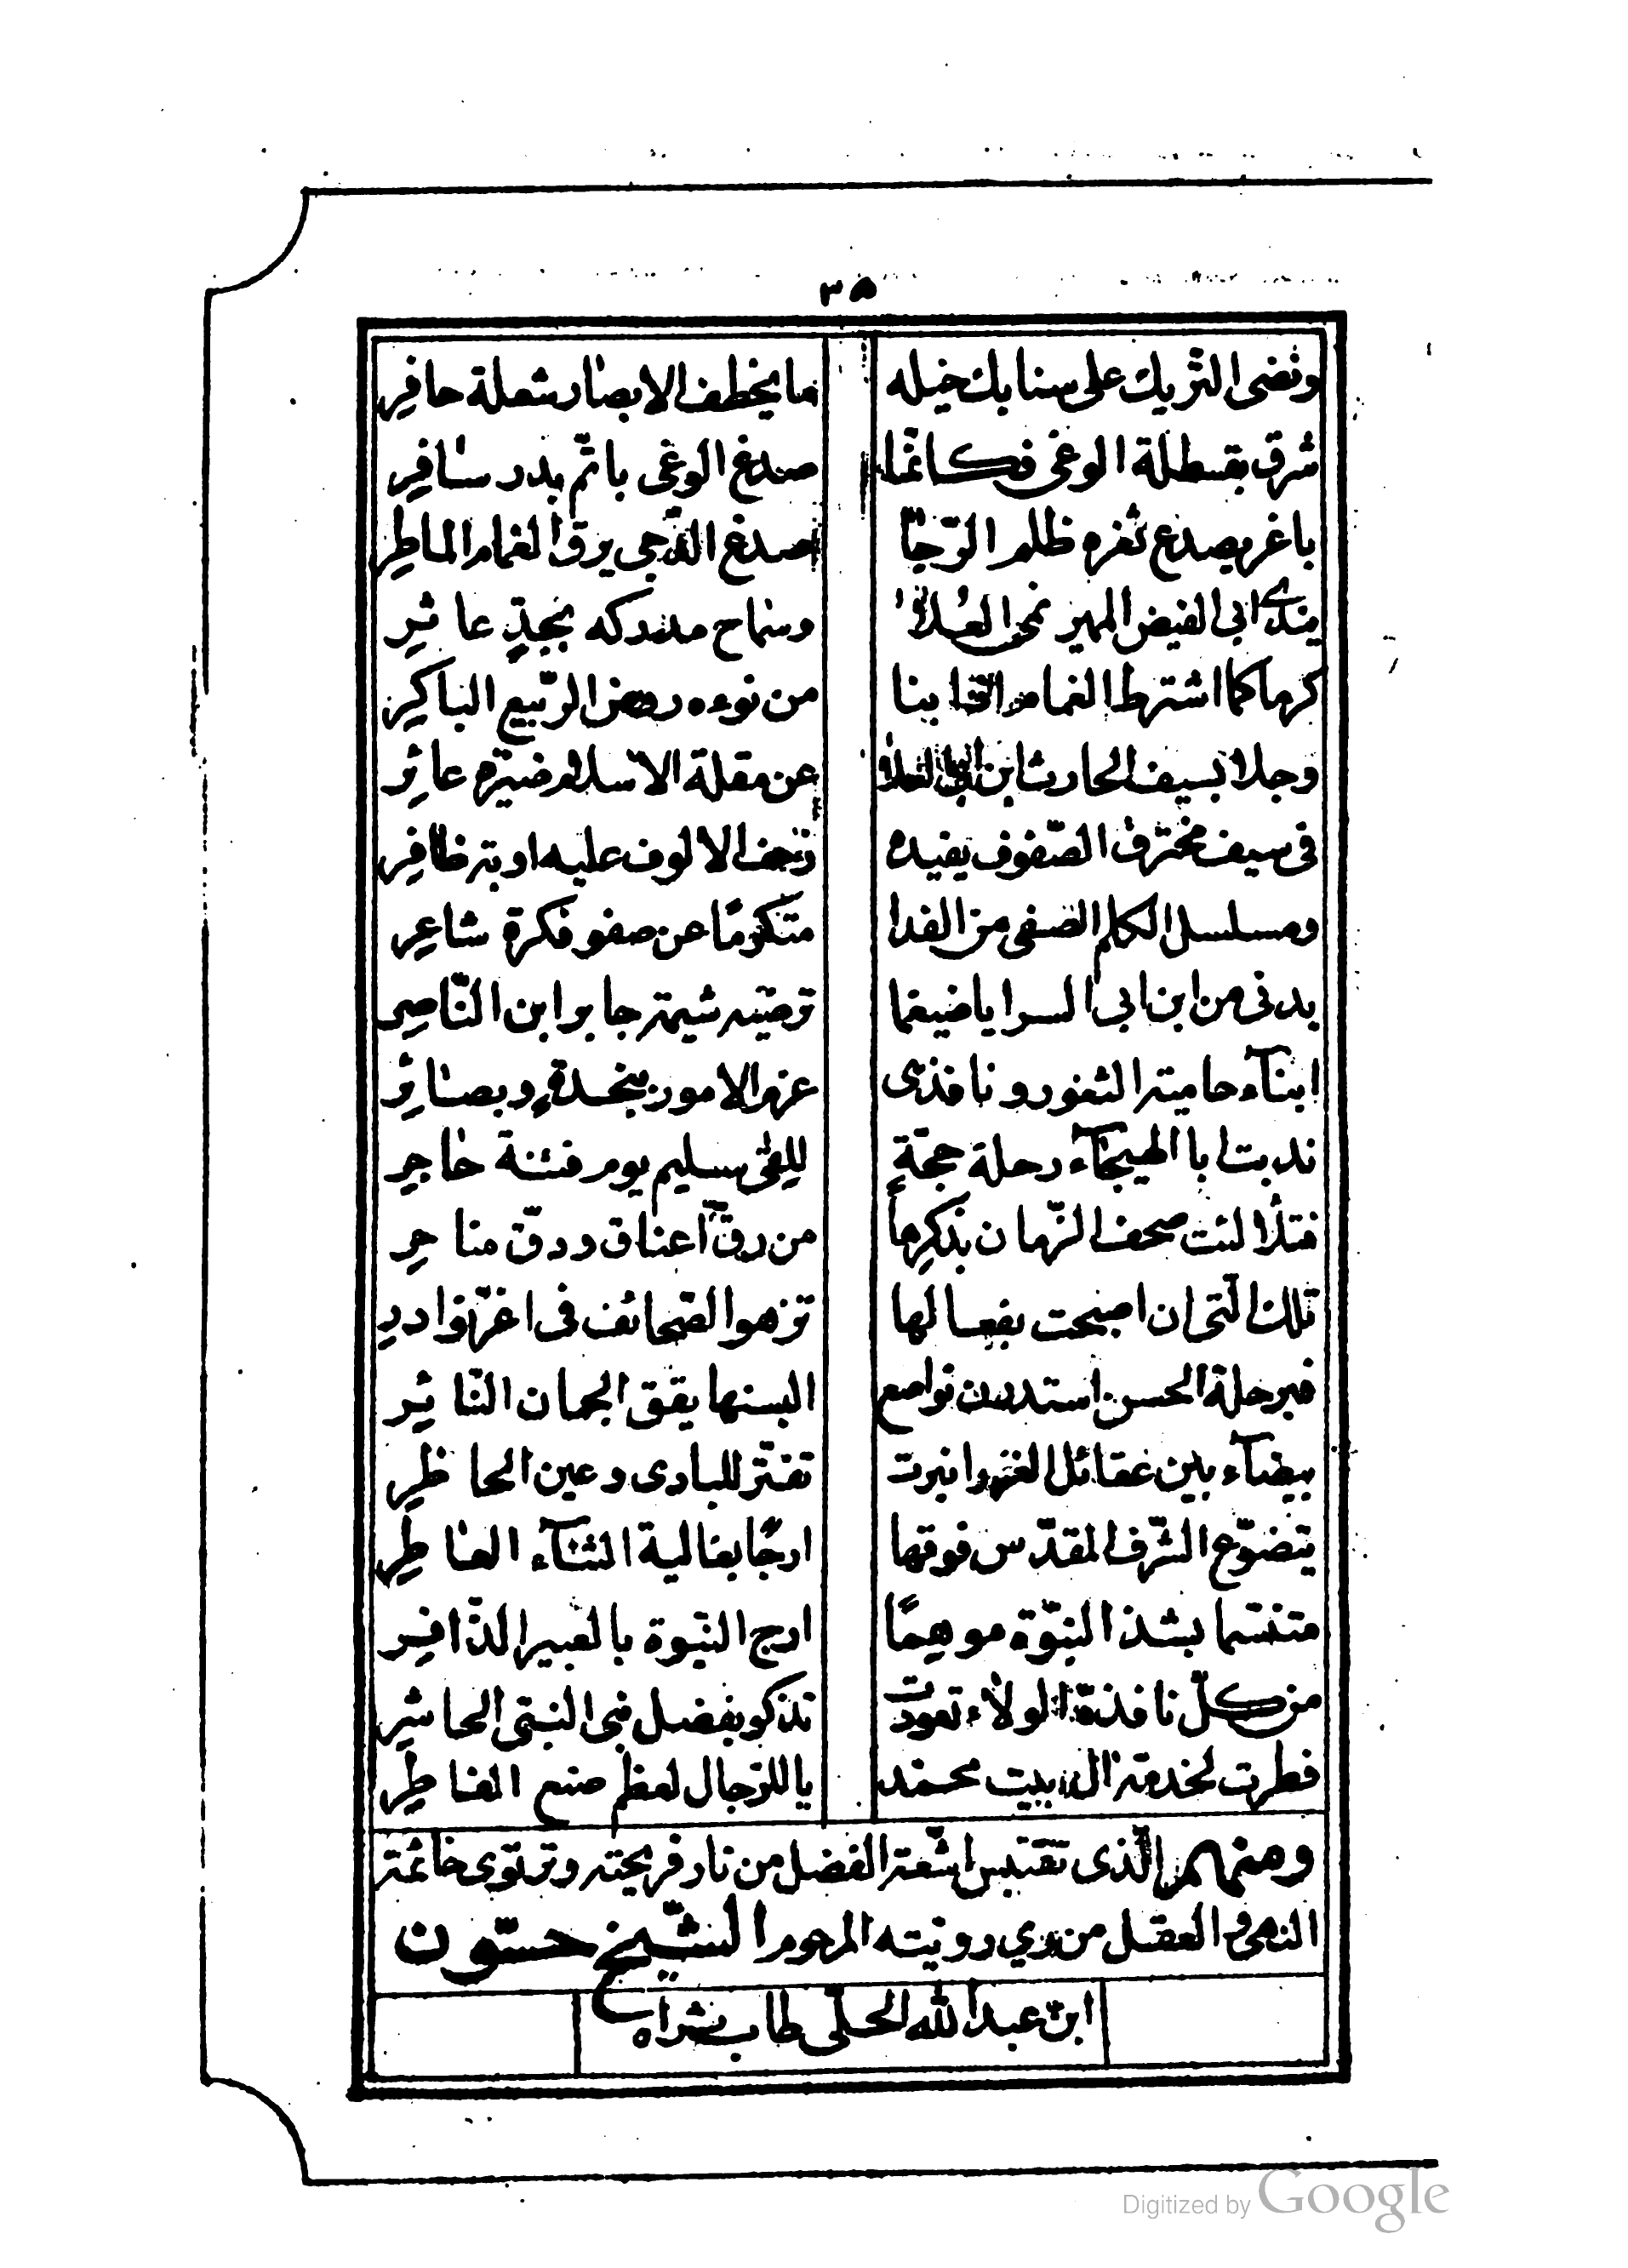 ٣٥
وتضى التريك على سنابك خيله ما يخطف الابصار شعلة حافر
شرق بقسطلة الوغى فكانما صدغ الوغى باتم بدر سافر
باغر يصدع ثغره ظلم الرجا صدغ الدجى برق الغمام الماطر
ابى الفيض المهير نحر العلا وسماح مدركه بجد عاثر
كرما كما اشترط الغمام بنا من نوءه روض الربيع الباكر
وجلا بسيف الحارث ابن عن مقلة الاسلام ضيرة عائر
فى سيف مخترق الصفوف يفيده زجف الالوف عليه اوبة ظافر
ومسلسل الكلم الصفى من الفدا متكرما عن صفو فكرة شاعر
بدنى من ابن ابى السرايا ضيغما ترضيه شيمة جابر ابن الناصر
ابنآء حامية الثغور ونافذى عزم الامور بنجدة وبصائر
ندبت ابا الهيجآء رحلة حجة للقى سليم يوم فتنة حاجر
فتلألئت صحف الزمان بذكرها من رق اعناق ودق مناحر
تلك التى ان اصبحت بفعالها تزهوا الصحائف فى اغر نوادر
فبرحلة الحسن استدرت نواصع البسنها يقق الجمان الناثر
بيضآء بين عقائل الغر انبرت تفتر للبادى وعين الحاظر
يتضوع الشرف المقدس فوقها ارجا بغالية الثنآء العاطر
متنسما بشذ النبوة موهما ارج النبوة بالعبير الذافر
من كل نافذة الولاء تعودت تذكو بفضل فى النبى الحاشر
فطرت لخدمة ال بيت محمد يا للرجال لعظم صنع الفاطر
ومنهم الذى تقتبس اشعة الفضل من نار قريحته وترتوى خاثمة
النهى العقل من رويته المرحوم الشيخ حسون
ابن عبد الله الحلى طاب ثراه
Digitized by Google